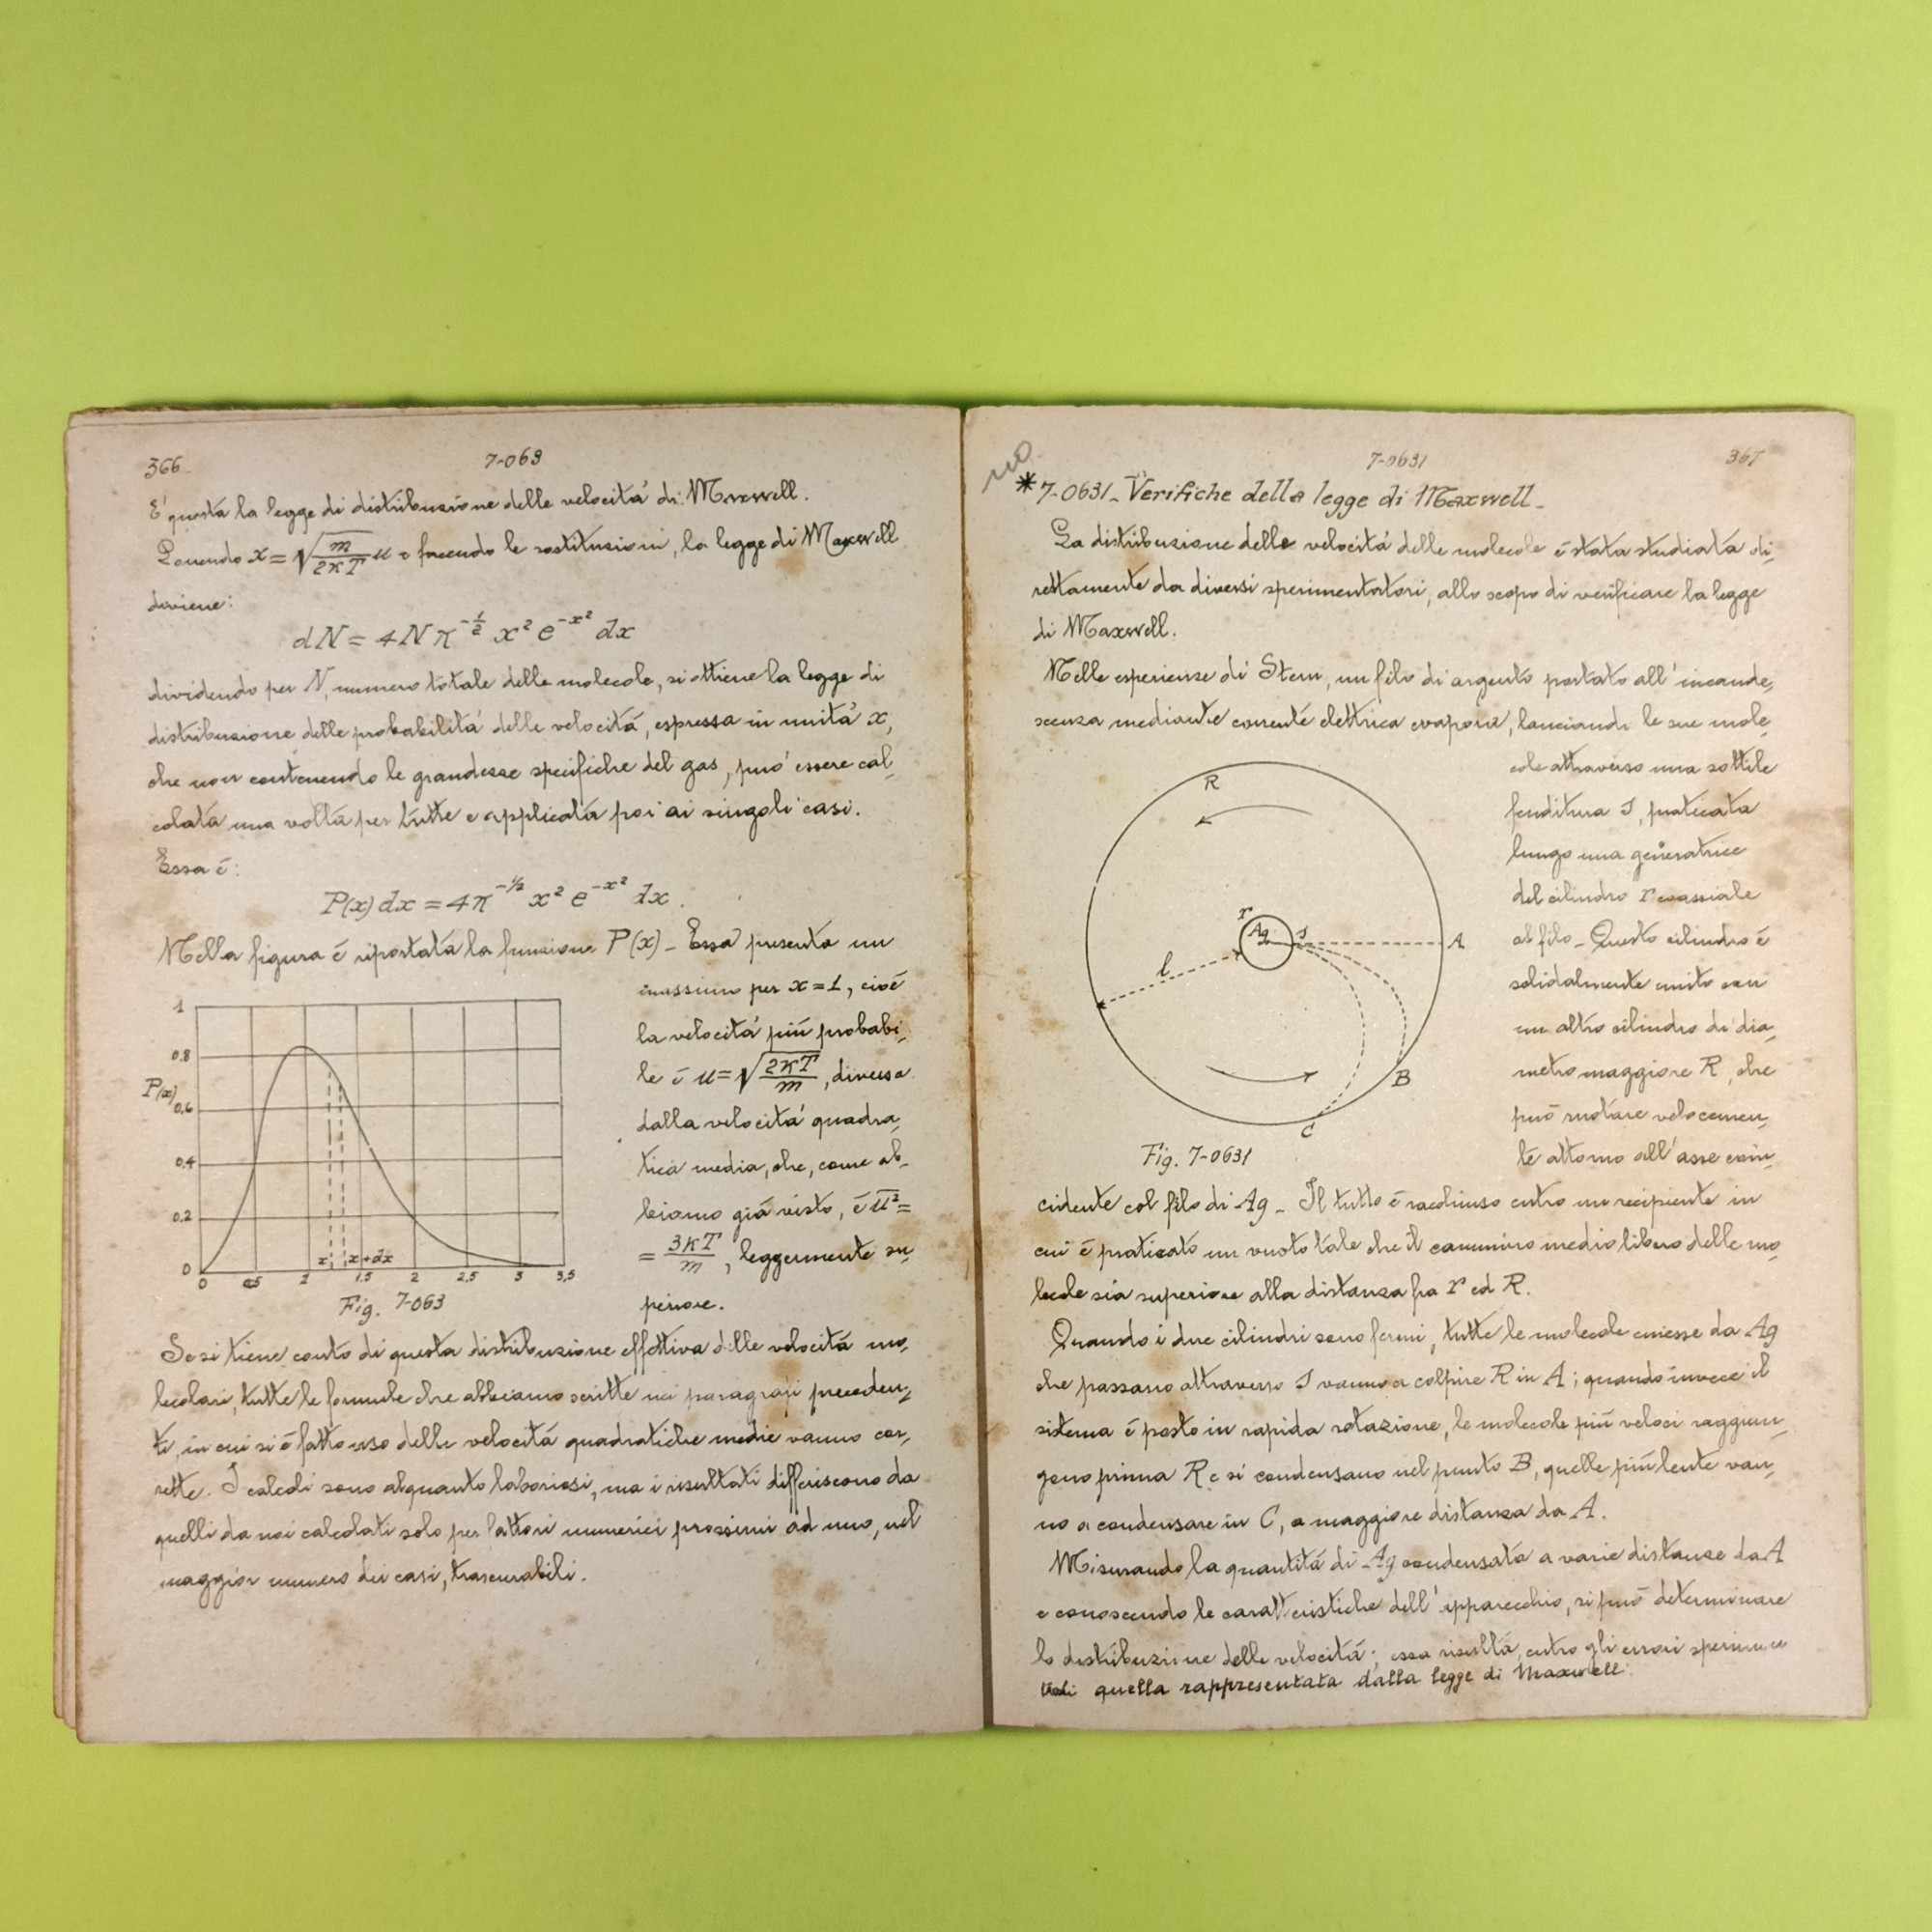 366
7-063
É questa la legge di distribuzione delle velocitá di Maxwell.
Ponendo x = √(m/2KT) u e facendo le sostituzioni, la legge di Maxwell
diviene:
dN = 4N π^(-1/2) x² e^(-x²) dx
dividendo per N, numero totale delle molecole, si ottiene la legge di
distribuzione delle probabilitá delle velocitá, espressa in unitá x,
che non contenendo le grandezze specifiche del gas, puó essere cal„
colata una volta per tutte e applicata poi ai singoli casi.
Essa é:
P(x) dx = 4π^(-1/2) x² e^(-x²) dx.
Nella figura é riportata la funzione P(x) - Essa presenta un
massimo per x = 1, cioé
la velocitá piú probabi„
le é u = √(2KT/m), diversa
dalla velocitá quadra„
tica media, che, come ab„
biamo giá visto, é u̅²=
= 3KT/m, leggermente su„
periore.
1
0,8
P(x)
0,6
0,4
0,2
0
x x+dx
0 0,5 1 1,5 2 2,5 3 3,5
Fig. 7-063
Se si tiene conto di questa distribuzione effettiva delle velocitá mo„
lecolari, tutte le formule che abbiamo scritte nei paragrafi preceden„
ti, in cui si é fatto uso delle velocitá quadratiche medie vanno cor„
rette. I calcoli sono alquanto laboriosi, ma i risultati differiscono da
quelli da noi calcolati solo per fattori numerici prossimi ad uno, nel
maggior numero dei casi, trascurabili.
no
7-0631
367
* 7-0631 - Verifiche della legge di Maxwell -
La distribuzione delle velocitá delle molecole é stata studiata di„
rettamente da diversi sperimentatori, allo scopo di verificare la legge
di Maxwell.
Nelle esperienze di Stern, un filo di argento portato all' incande„
scenza mediante corrente elettrica evapora, lanciando le sue mole„
cole attraverso una sottile
fenditura S, praticata
lungo una generatrice
del cilindro r coassiale
al filo - Questo cilindro é
solidalmente unito con
un altro cilindro di dia„
metro maggiore R, che
puó ruotare velocemen„
te attorno all' asse coin„
R
r
Ag
S
A
l
B
C
Fig. 7-0631
cidente col filo di Ag - Il tutto é racchiuso entro un recipiente in
cui é praticato un vuoto tale che il cammino medio libero delle mo„
lecole sia superiore alla distanza fra r ed R.
Quando i due cilindri sono fermi, tutte le molecole emesse da Ag
che passano attraverso S vanno a colpire R in A; quando invece il
sistema é posto in rapida rotazione, le molecole piú veloci raggiun„
gono prima R e si condensano nel punto B, quelle piú lente van„
no a condensare in C, a maggiore distanza da A.
Misurando la quantitá di Ag condensata a varie distanze da A
e conoscendo le caratteristiche dell' apparecchio, si puó determinare
la distribuzione delle velocitá; essa risulta, entro gli errori sperimen
tali quella rappresentata dalla legge di Maxwell.